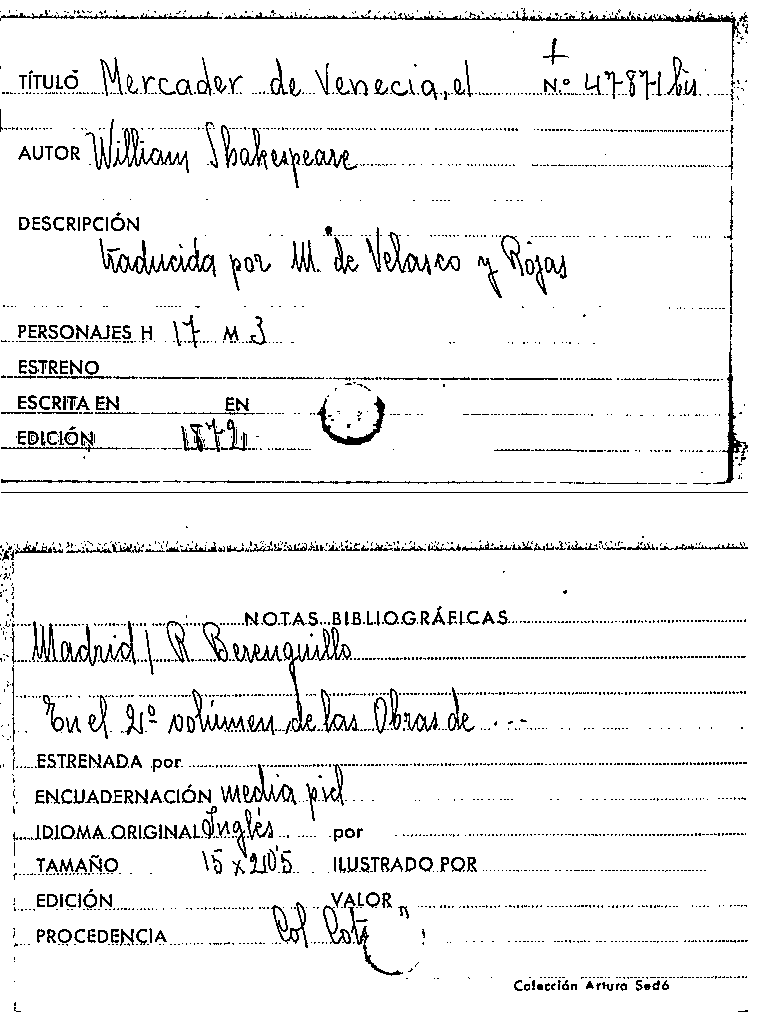 TÍTULO Mercader de Venecia, el Nº 47871 bis
AUTOR William Shakespeare
DESCRIPCIÓN
traducida por M. de Velasco y Rojas
PERSONAJES H 17 M 3
ESTRENO
ESCRITA EN EN
EDICIÓN 1872
NOTAS BIBLIOGRÁFICAS
Madrid / R Berenguillo
En el 2º volúmen de las Obras de ...
ESTRENADA por
ENCUADERNACIÓN media piel
IDIOMA ORIGINAL Inglés por
TAMAÑO 15 x 20'5 ILUSTRADO POR
EDICIÓN VALOR
PROCEDENCIA Col
Colección Arturo Sedó